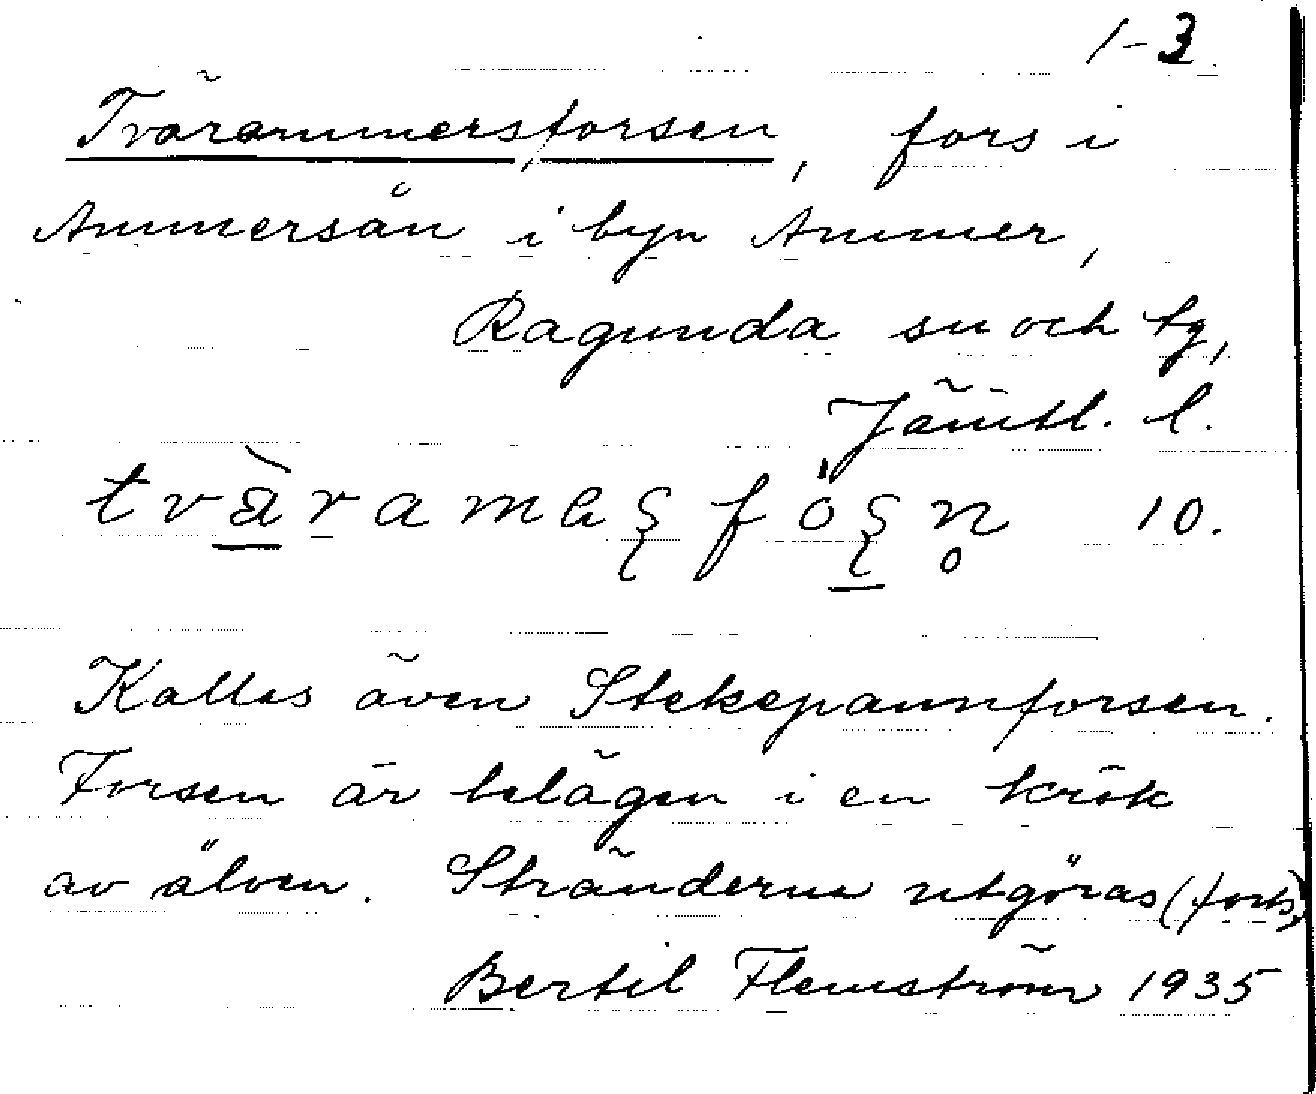 1-3.
Tvärammersforsen, fors i
Ammersån i byn Ammer,
Ragunda sn och tg,
Jämtl. l.
10.
Kallas även Stekepannforsen.
Forsen är belägen i en krök
av älven. Stränderna utgöras (forts)
Bertil Flemström 1935